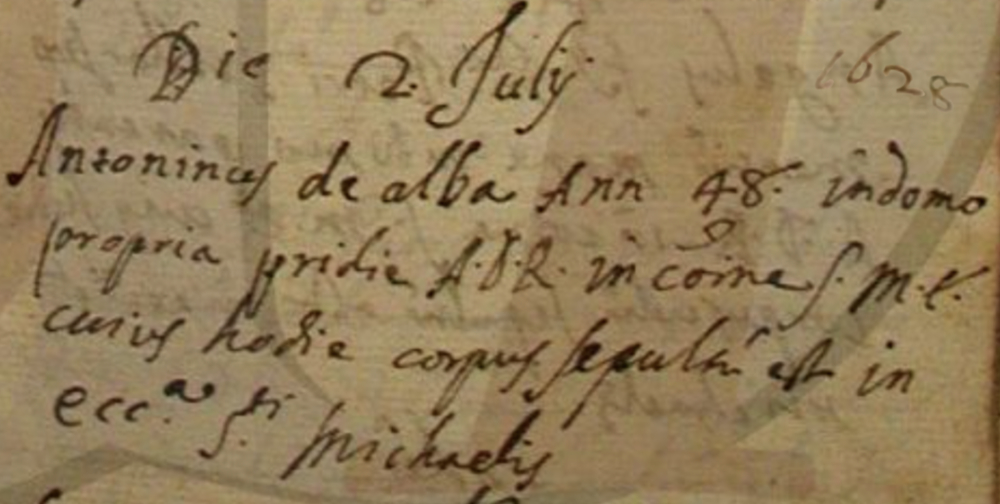 Die 2. Julij 1628
Antoninus de alba Ann 48. in domo
propria pridie A.D.R. in cõione S. M. E.
cuius hodie corpus sepultũ est in
ecc.a S.ti Michaelis